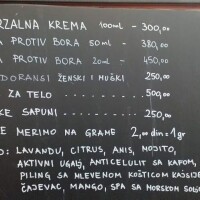 RZALNA KREMA 100ml - 300,00
PROTIV BORA 50ml - 380,00
PROTIV BORA 20ml - 450,00
DORANSI ŽENSKI I MUŠKI 250,00
ZA TELO - 500,00
KE SAPUNI - 250,00
E MERIMO NA GRAME 2,00 din = 1gr
O: LAVANDU, CITRUS, ANIS, MOJITO,
AKTIVNI UGALJ, ANTICELULIT SA KAFOM,
PILING SA MLEVENOM KOŠTICOM KAJSIJE
ČAJEVAC, MANGO, SPA SA MORSKOM SOLJO